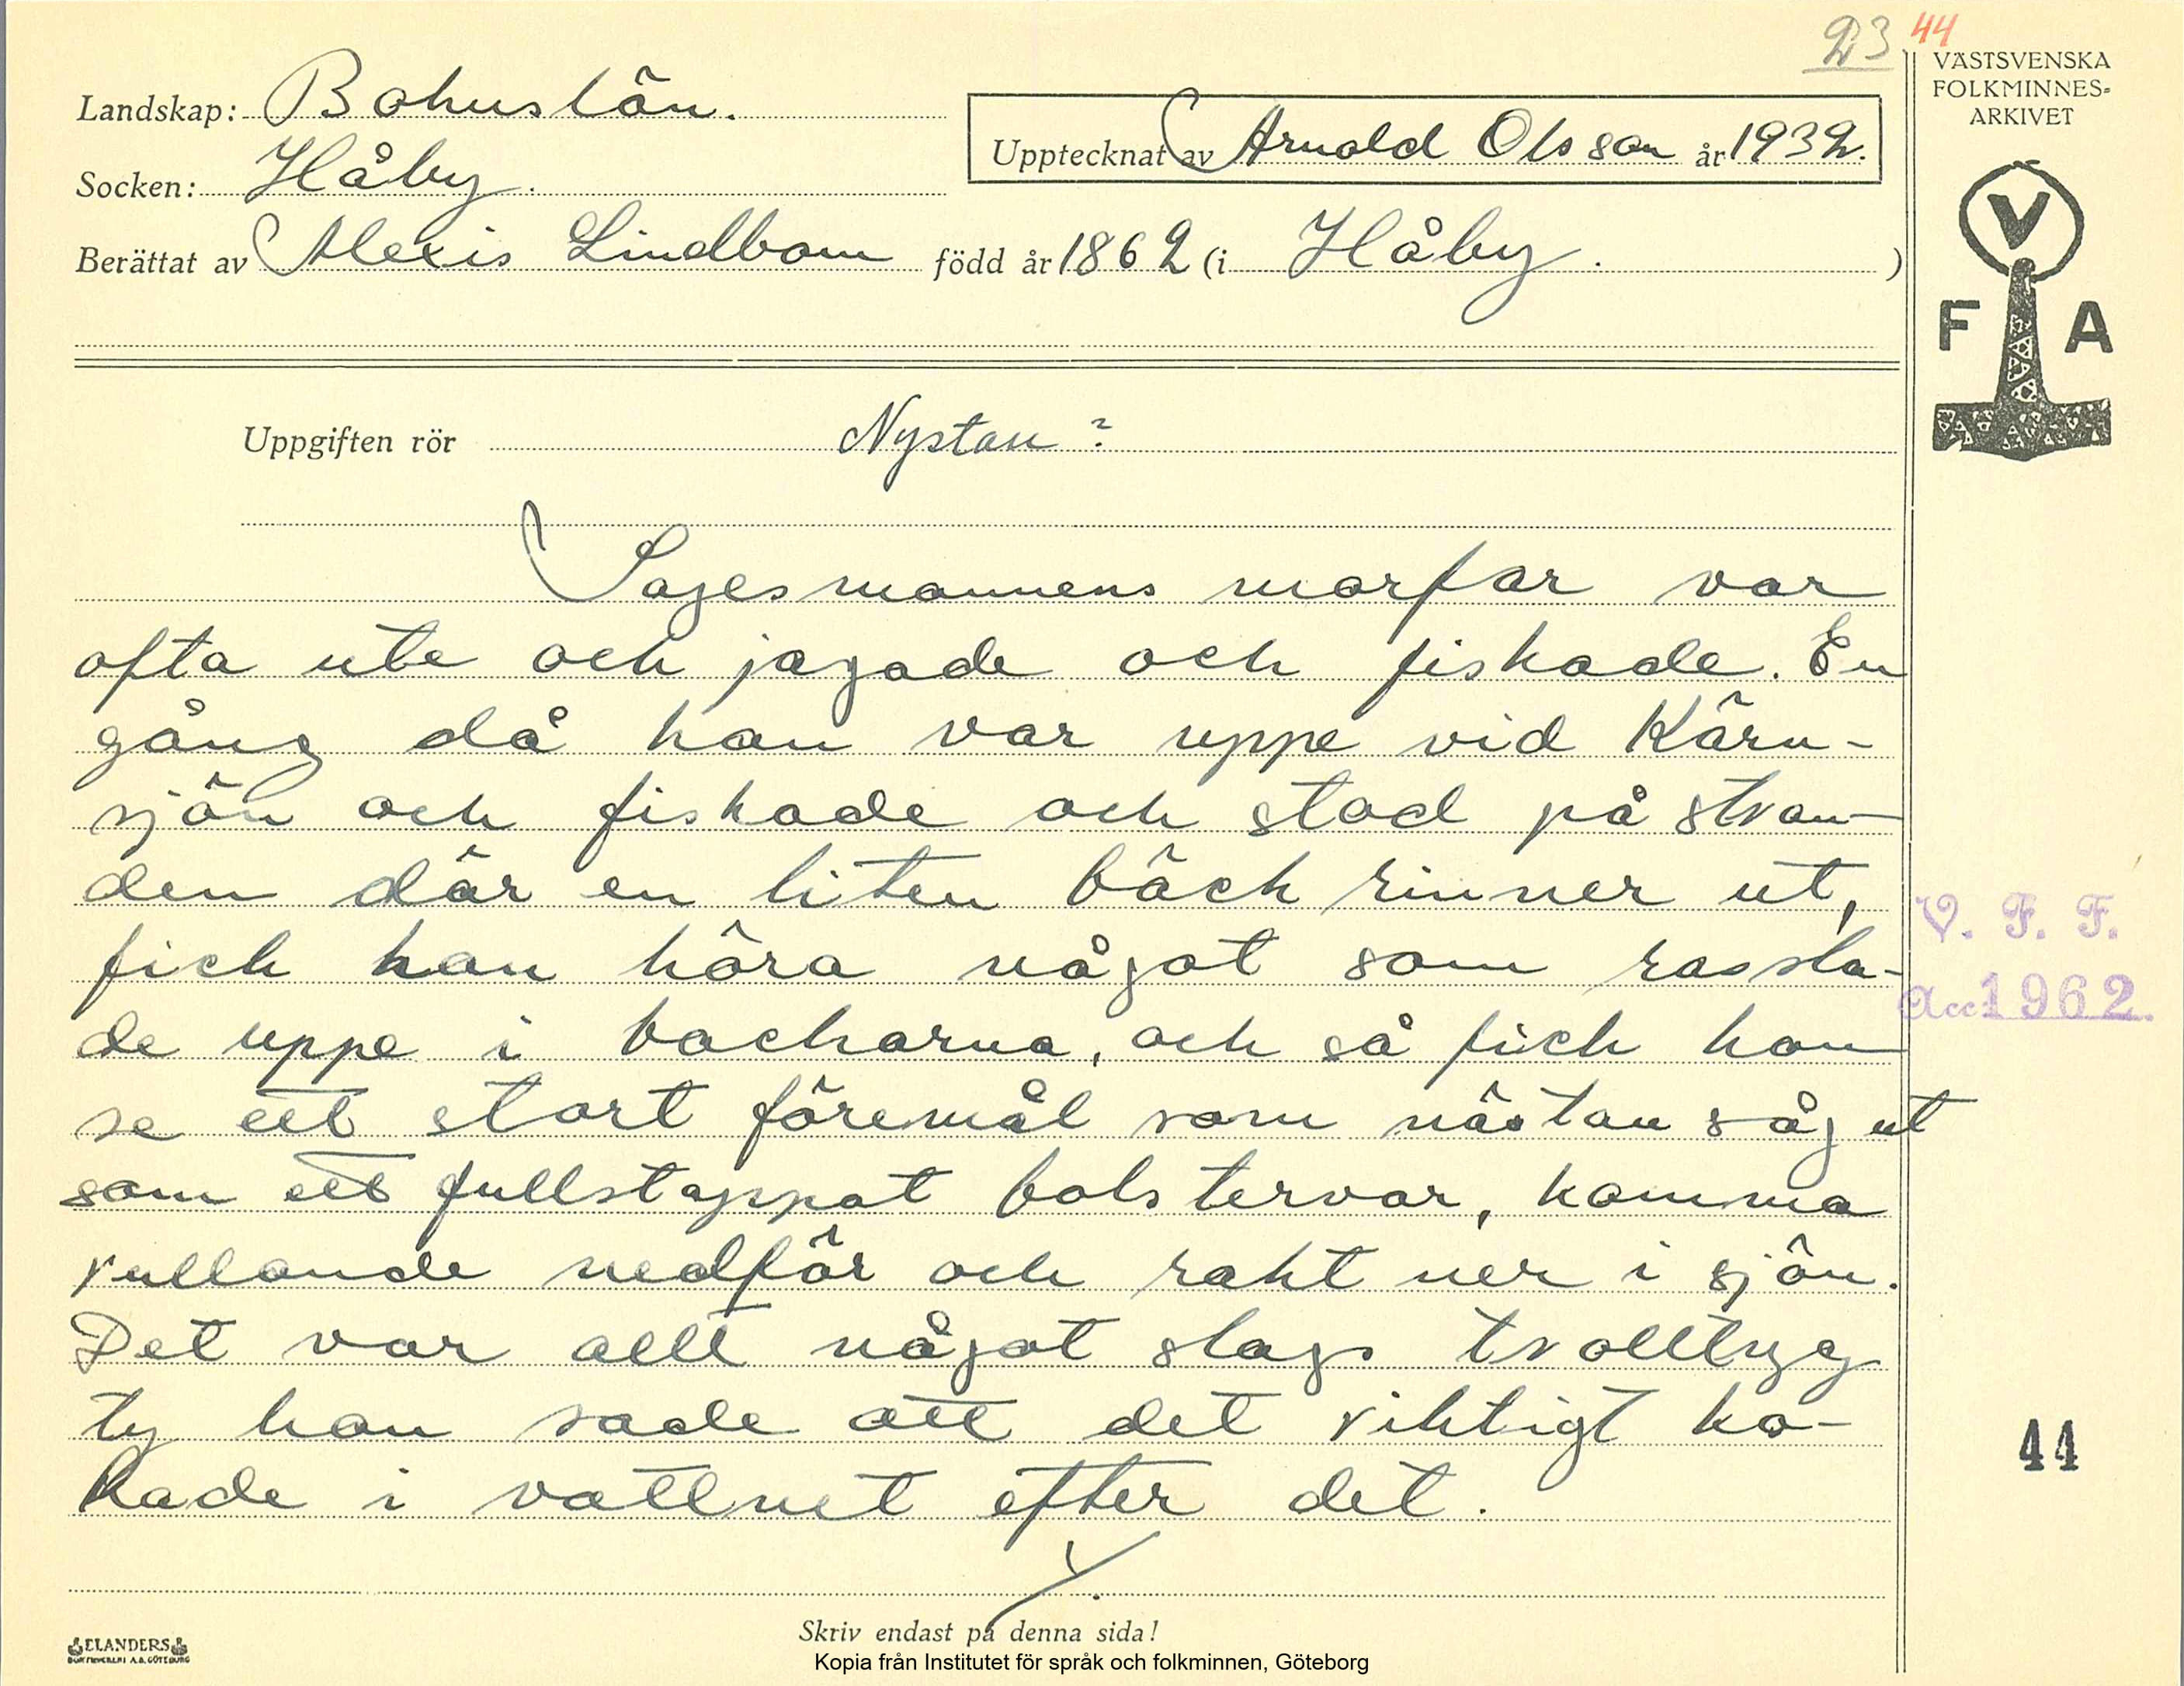 D3 44
VÄSTSVENSKA
FOLKMINNES-
ARKIVET
Landskap: Bohuslän.
Upptecknat av Arnold Olsson år 1932.
Socken: Håby.
Berättat av Alexis Lindbom född år 1862 (i Håby. )
V
F A
Uppgiften rör Nystan?
Sagesmannens morfar var
ofta ute och jagade och fiskade. En
gång då han var uppe vid Kärn-
sjön och fiskade och stod på stran-
den där en liten bäck rinner ut,
fick han höra något som rassla-
de uppe i backarna, och så fick han
se ett stort föremål som nästan såg ut
som ett fullstappat bolstervar, komma
rullande nedför och rakt ner i sjön.
Det var allt något slags trolltyg
ty han sade att det riktigt ko-
kade i vattnet efter det.
V. F. F.
Acc 1962.
44
Skriv endast på denna sida!
ELANDERS
BOKTRYCKERI A.B. GÖTEBORG
Kopia från Institutet för språk och folkminnen, Göteborg